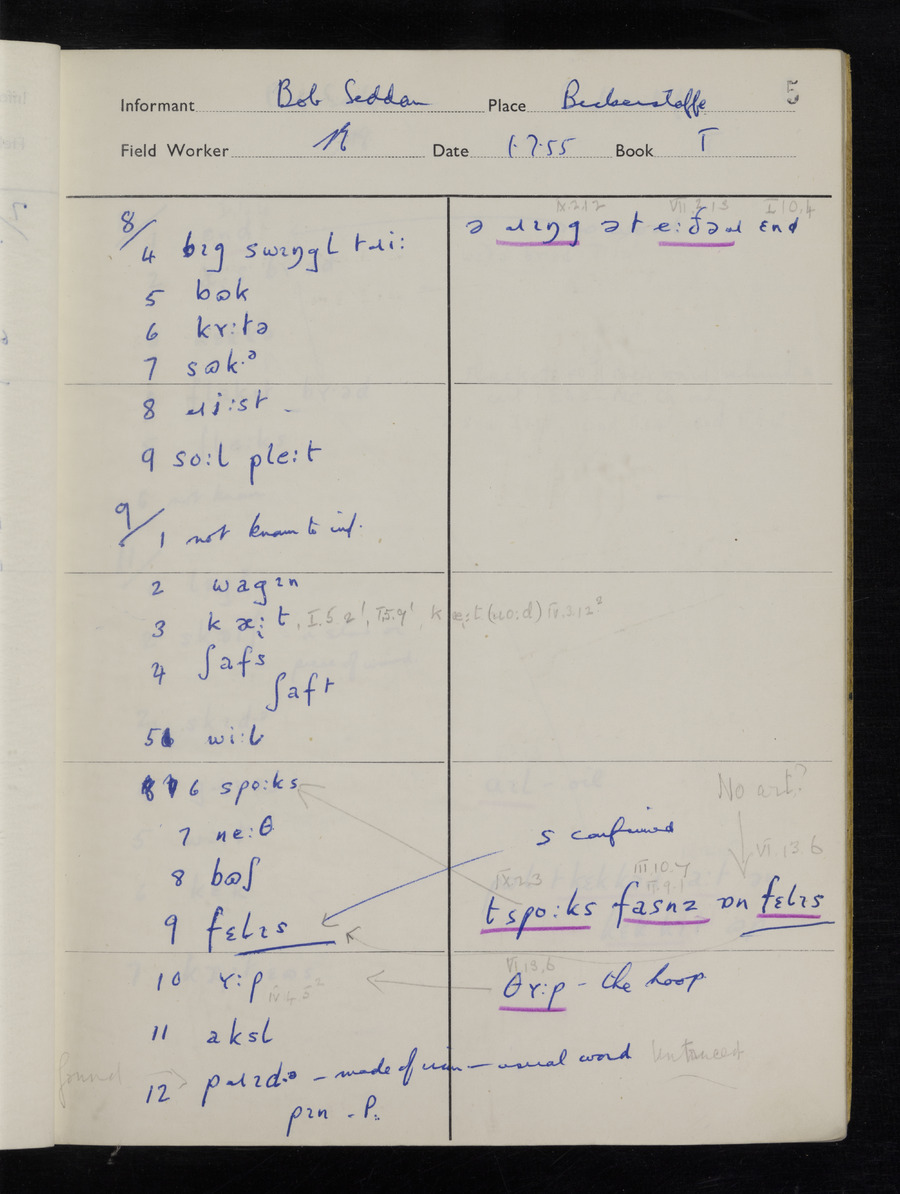 5
Informant Bob Seddon Place Bickerstaffe
Field Worker Date 1.7.55 Book I
8/
4 bɪg swɪŋgl tɹiː
ə ɹɪŋg ət eːðəɹ ɛnd
IX.2.12 VII.2.13 I.10.4
5 bɷk
6 kʏːtə
7 sɷk·ə
8 ɹiːst
9 soːl pleːt
9/
1 not known to inf.
2 wagɪn
3 kæːt, I.5.2', I.5.9'
4 ʃafs
ʃaft
5 wiːl
6 spoːks
No art?
7 neːθ
s confirmed
VI.13.6
8 bɷʃ
IX.2.3 III.10.7
IX.9.1
9 fɛlɪs
t spoːks fasnz ɒn fɛlɪs
10 ʏːp IV.4.5²
VI.13.6
θʏːp - the hoop
11 aksl
12 pɹɪd·ə – made of iron – usual word
pɪn - P.